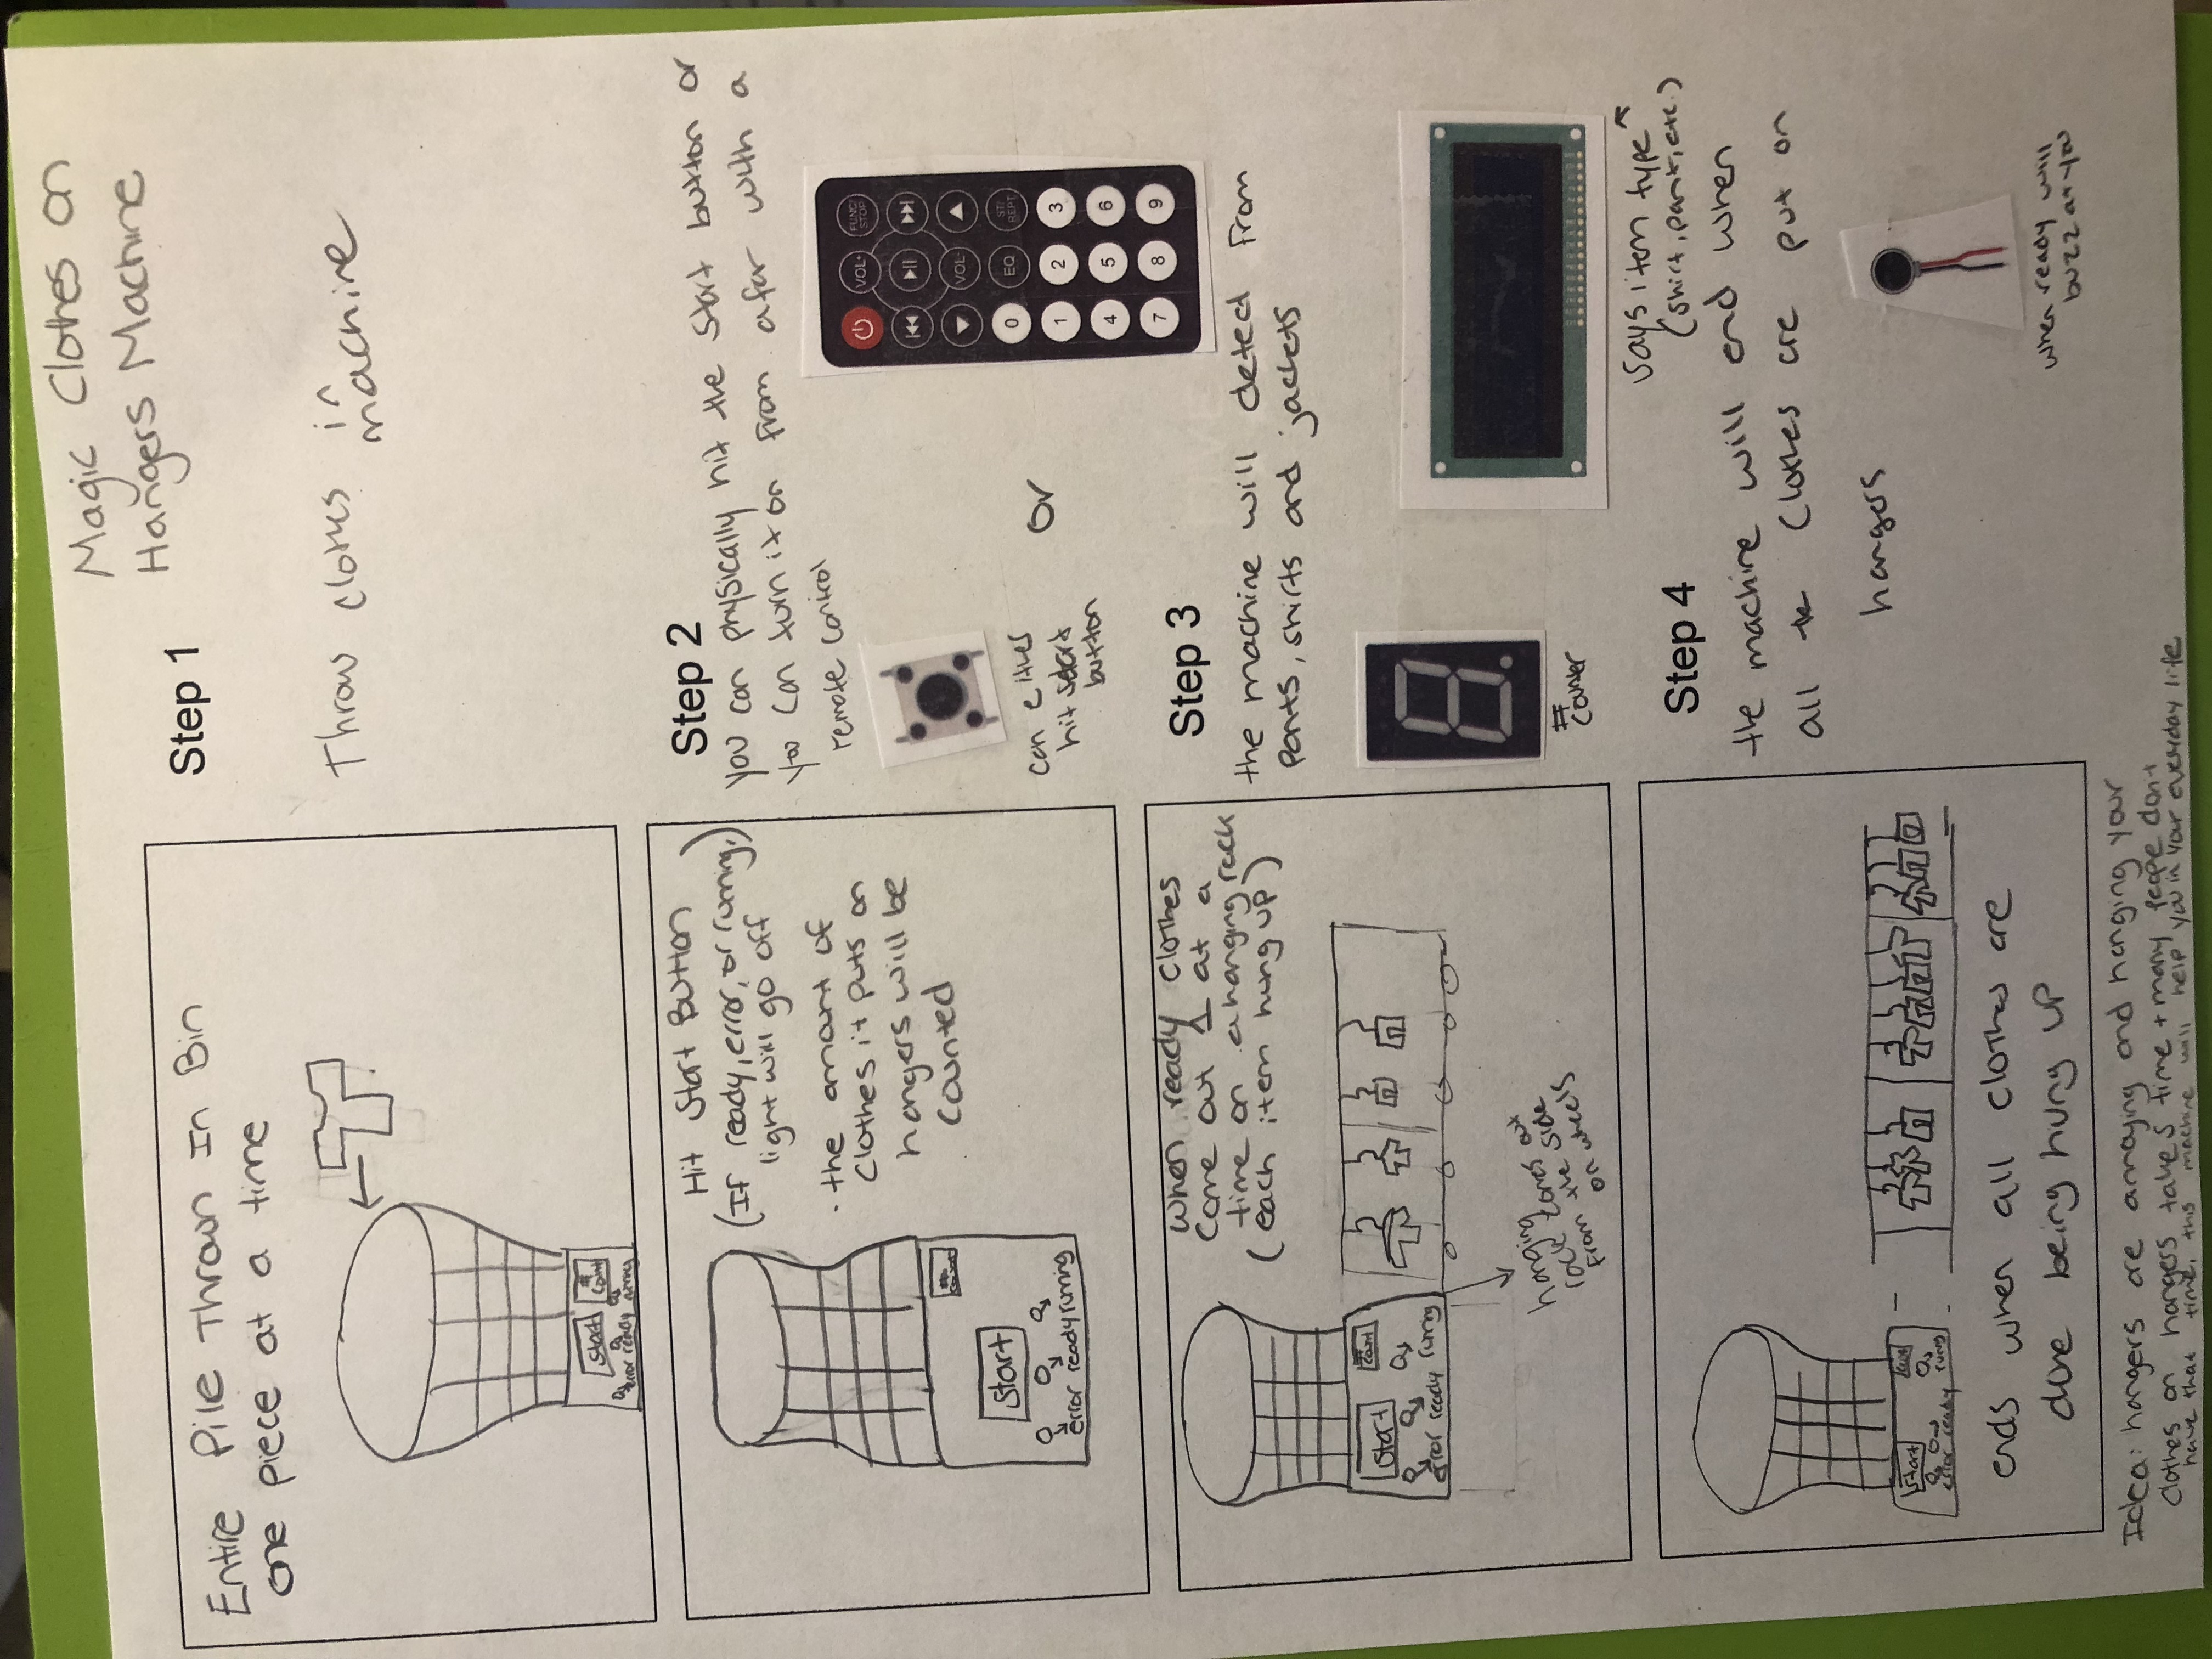 Magic Clothes on
Hangers Machine
Step 1
Entire Pile Thrown In Bin
one piece at a time
Throw clothes in
machine
Start
# count
error ready running
Step 2
Hit Start Button
(If ready, error, or running,)
light will go off
· the amount of
clothes it puts on
hangers will be
counted
Start
error ready running
You can physically hit the start button or
you can turn it on from afar with a
remote control
can either
hit start
button
or
VOL+
FUNC/
STOP
VOL-
0
EQ
ST/
REPT
1
2
3
4
5
6
7
8
9
Step 3
When ready clothes
come out 1 at a
time on a hanging rack
(each item hung up)
Start
# count
error ready running
hanging
rack comes out
from the side
on wheels
the machine will detect from
pants, shirts and jackets
# counter
says item type
(shirt, pant, etc.)
Step 4
Start
error ready running
ends when all clothes are
done being hung up
the machine will end when
all the clothes are put on
hangers
when ready will
buzz at you
Idea: hangers are annoying and hanging your
clothes on hangers takes time + many people don't
have that time, this machine will help you in your everyday life